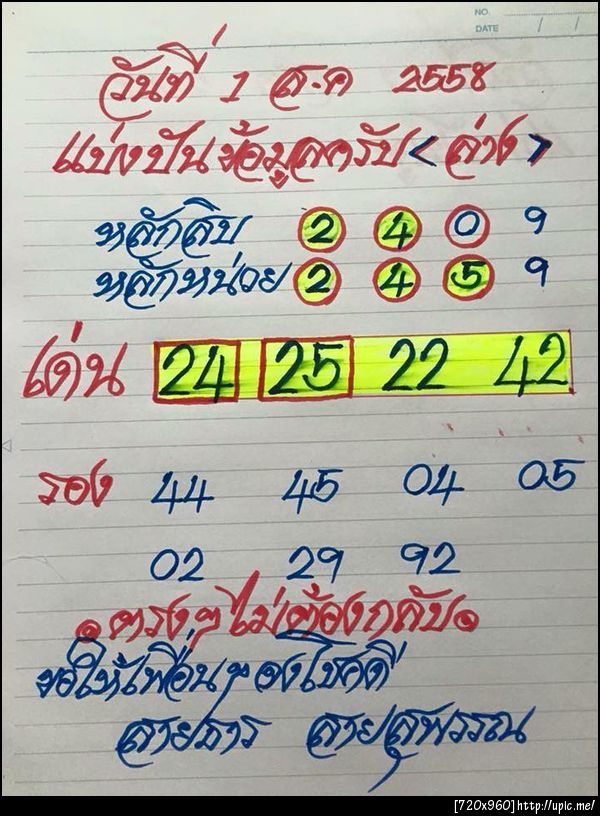 NO.
DATE / /
วันที่ 1 ส.ค 2558
แบ่งปันข้อมูลครับ <ล่าง>
หลักสิบ 2 4 0 9
หลักหน่วย 2 4 5 9
เด่น 24 25 22 42
รอง 44 45 04 05
02 29 92
ตรงๆ ไม่ต้องกลับ
ขอให้เพื่อนๆ จงโชคดี
สายธาร สายสุพรรณ
[720x960]http://upic.me/